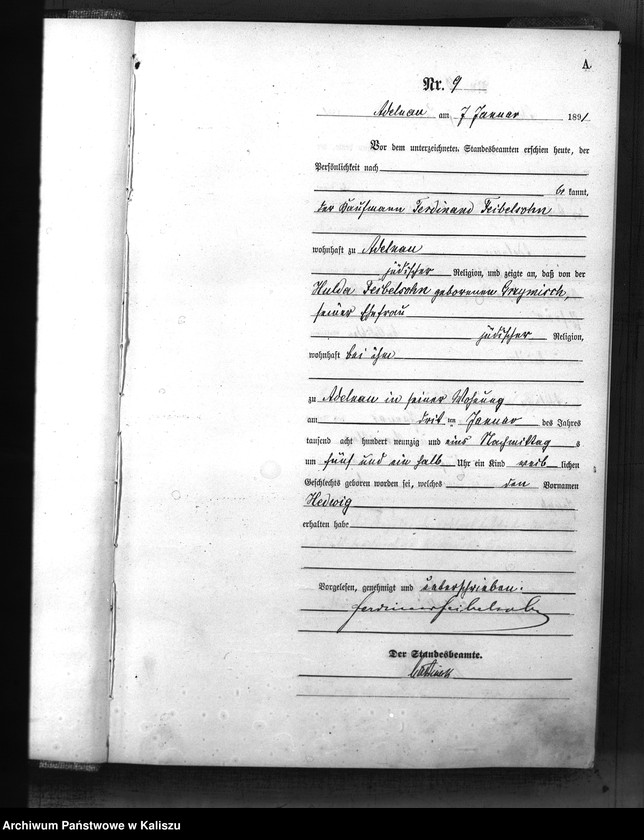 A
Nr. 9
Adelnau am 7 Januar 1891
Vor dem unterzeichneten Standesbeamten erschien heute, der
Persönlichkeit nach
be kannt,
der Kaufmann Ferdinand Feibelsohn
wohnhaft zu Adelnau
jüdischer Religion, und zeigte an, daß von der
Hulda Feibelsohn geborenen
seiner Ehefrau
jüdischer Religion,
wohnhaft bei ihm
zu Adelnau in seiner Wohnung
am drit ten Januar des Jahres
tausend acht hundert neunzig und eins Nachmittag s
um fünf und ein halb Uhr ein Kind weib lichen
Geschlechts geboren worden sei, welches den Vornamen
Hedwig
erhalten habe
Vorgelesen, genehmigt und
Ferdinand Feibelsohn
Der Standesbeamte.
Archiwum Państwowe w Kaliszu